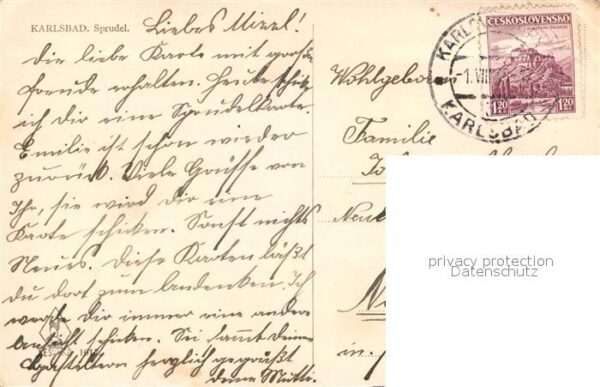 KARLSBAD. Sprudel.
Liebes Mizzl!
die liebe Karte mit große
Freude erhalten. Heute schik
ich dir eine Sprudelkarte.
Emilie ist schon wieder
zurück. Viele Grüsse von
Ihr, sie wird dir eine
Karte schicken. Sonst nichts
Neues. Diese Karten läßt
du dort zum Andenken. Ich
werde dir immer eine andere
Ansicht schicken. Sei samt deine
herzlich gegrüßt
deine Mutti.
ČESKOSLOVENSKO
1·20 1·20
KARLOVY
-1.VII
KARLSBAD
Wohlgeboren
Familie
privacy protection
Datenschutz